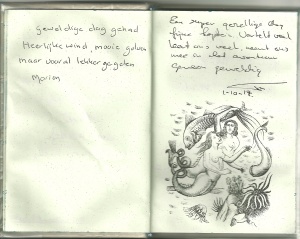 geweldige dag gehad
Heerlijke wind, mooie golven
maar vooral lekker gegeten
Marion
Een super gezellige dag
fijne kapitein. Vertelt veel
laat ons veel, neemt ons
mee in het avontuur
Gewoon geweldig
1-10-17